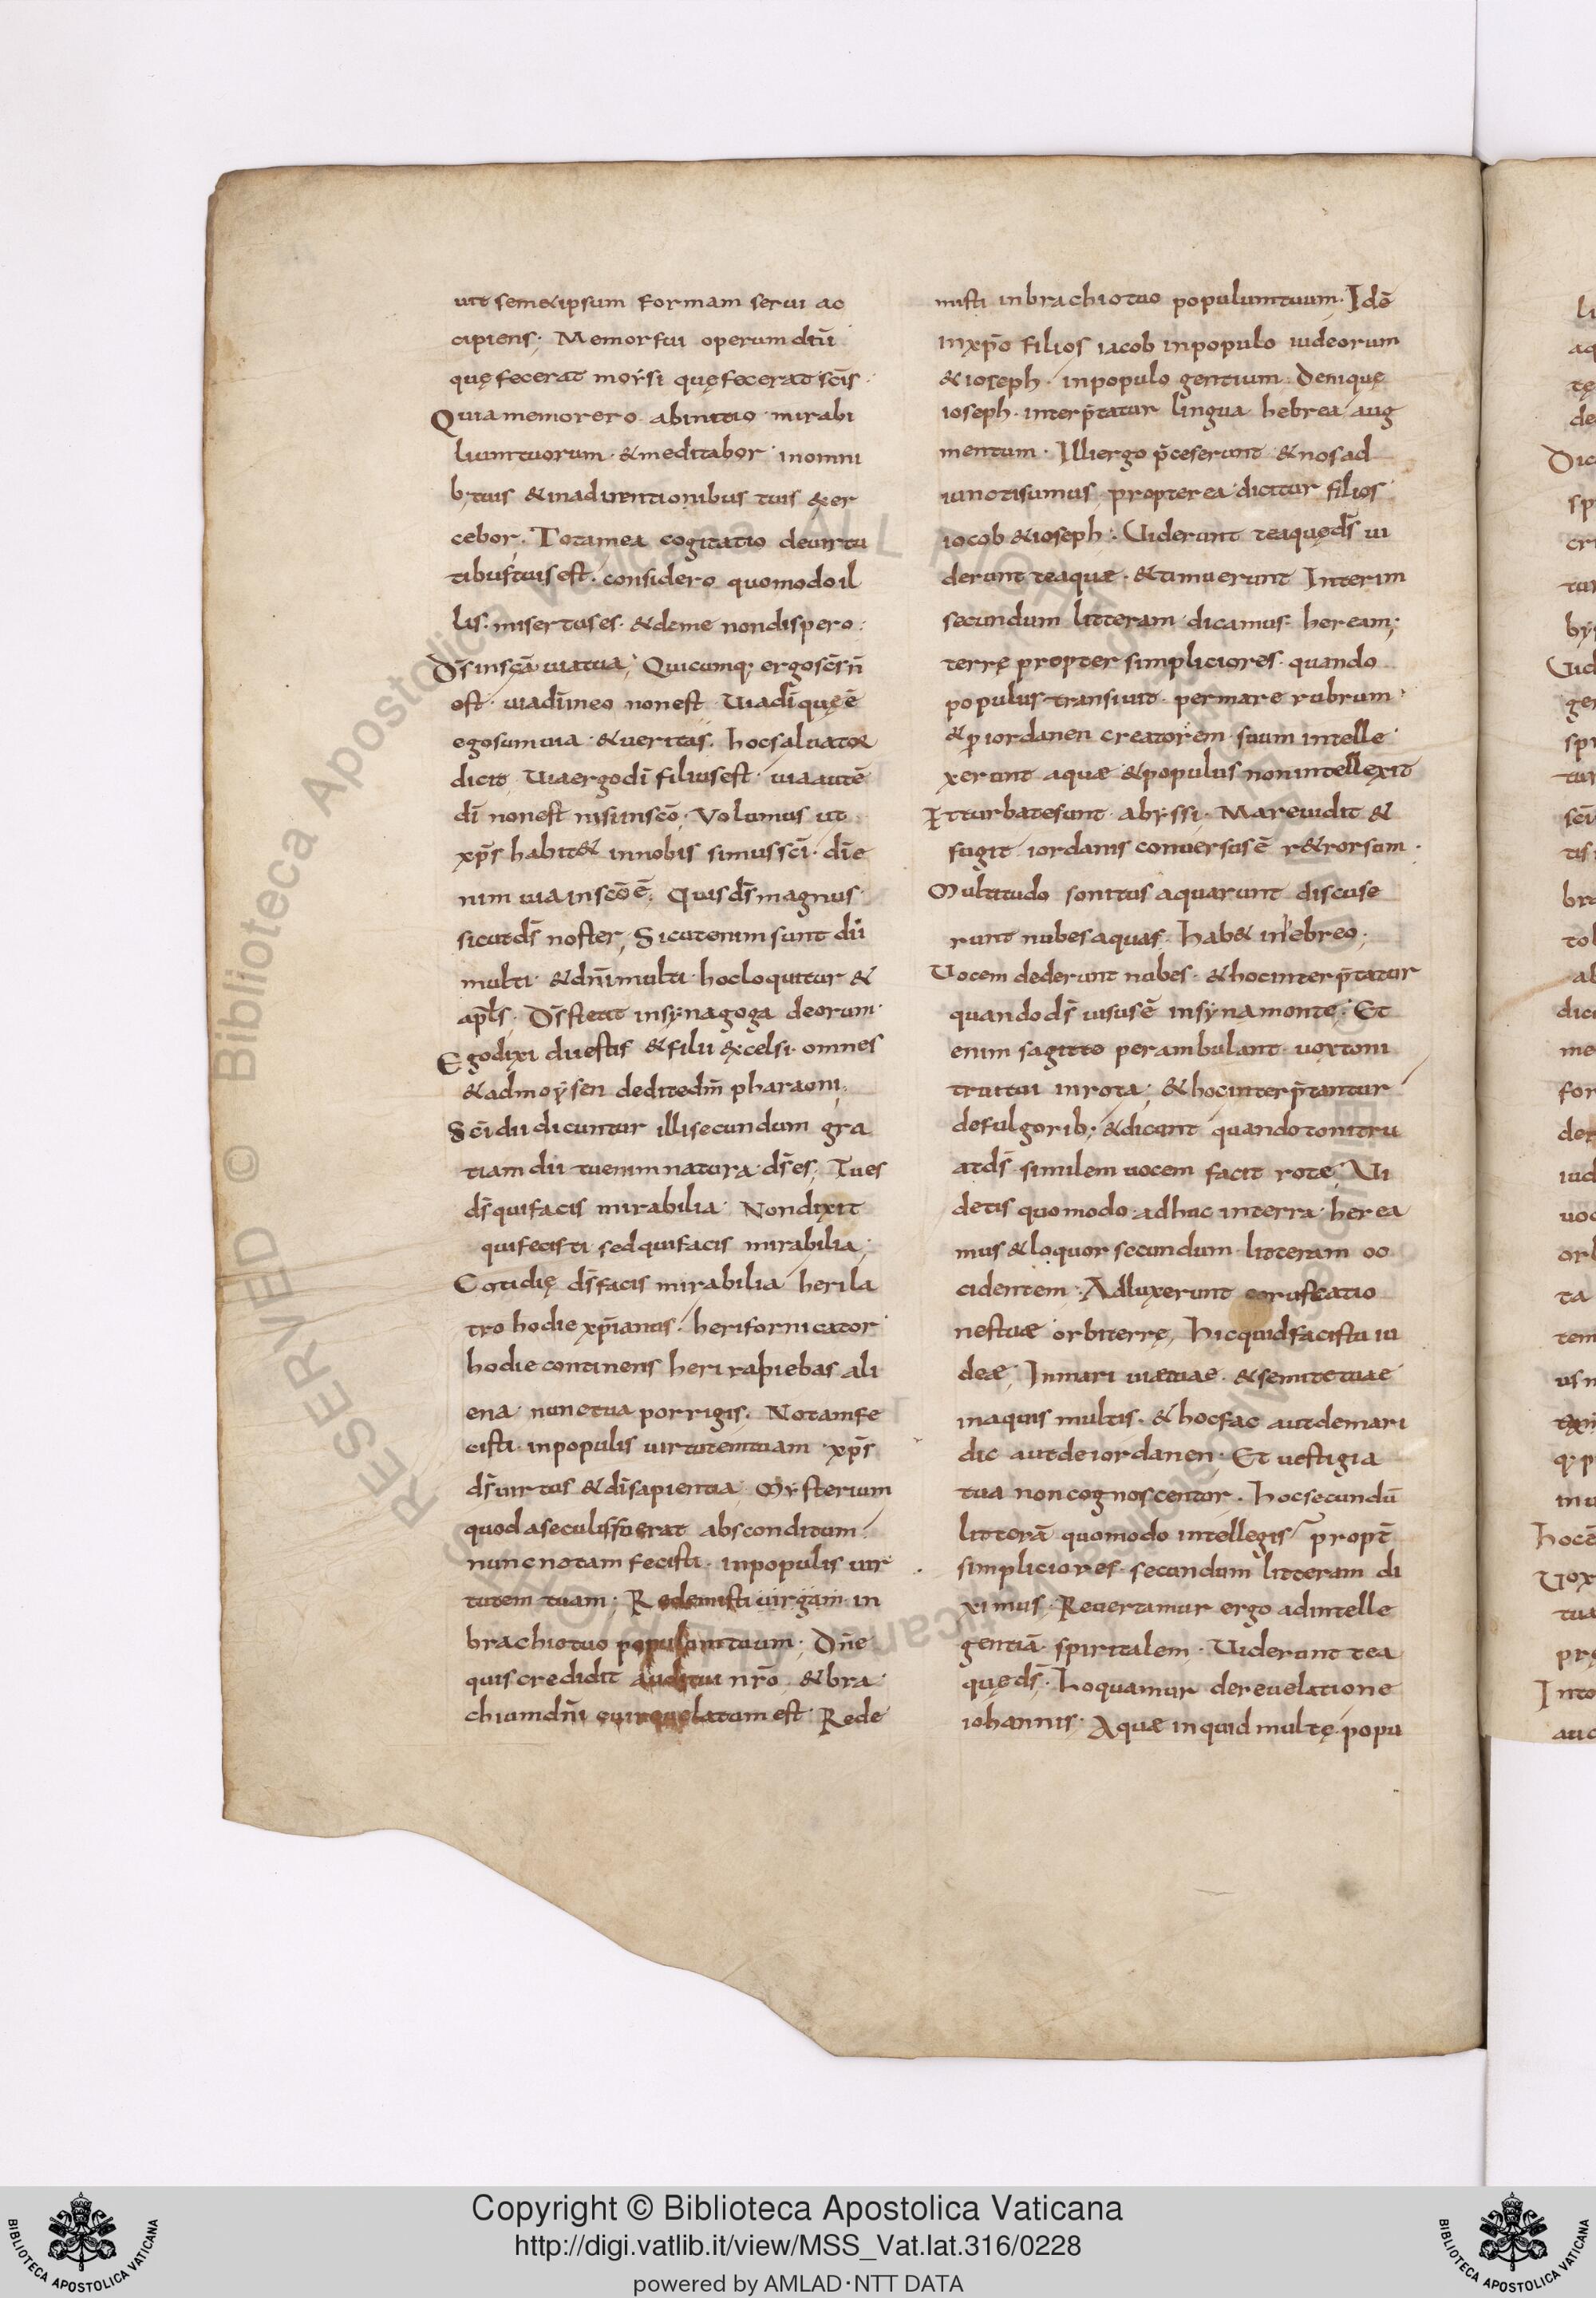 ut semetipsum formam serui ac
cipiens; Memor fui operum dn̄i
quę fecerat moẏsi quę fecerat sc̄is·
Quia memor ero ab initio mirabi
lium tuorum· & meditabor in omni
b; tuis & in aduentionibus tuis exer
cebor. Tota mea cogitatio de uirtu
tibus tuis est. considero quomodo il
lis. misertus es· & de me non dispero:
D̄s in sc̄a uia tua; Quicumq; ergo sc̄s n̄
est· uia dī in eo non est· Uia dī quę ē
ego sum uia· & ueritas. hoc saluator
dicit Uia ergo dī filius est· uia autē
dī non est nisi in sc̄o; Volumus ut
xp̄s habitet in nobis simus sc̄i· dī e
nim uia in sc̄o ē; Quis d̄s magnus
sicut d̄s noster; Sicut enim sunt dii
multi· & dn̄i multi· hoc loquitur &
apl̄s; D̄s stetit in sẏnagoga deorum·
Ego dixi dii estis & filii excelsi· omnes
& ad moẏsen dedi te dm̄ pharaoni;
Sc̄i dii dicuntur illi secundum gra
tiam dii tu enim natura· d̄s es; Tu es
d̄s qui facis mirabilia· Non dixit
qui fecisti sed qui facis mirabilia;
Cotidię d̄s facis mirabilia heri la
tro hodie xp̄ianus· heri fornicator
hodie continens heri rapiebas ali
ena nunc tua porrigis. Notam fe
cisti· in populis uirtutem tuam xp̄s
dī uirtus & dī sapientia; Mẏsterium
quod a seculis fuerat absconditum
nunc notam fecisti· in populis uir
tutem tuam; Redemisti uirgam in
brachio tuo populum tuum; Dn̄e
quis credidit auditui nr̄o & bra
chium dn̄i cui reuelatum est· Rede
misti in brachio tuo populum tuum· Idē
in xp̄o filios iacob in populo iudeorum
& ioseph· in populo gentium· Denique
ioseph· interp̄tatur lingua hebrea aug
mentum· Illi ergo p̄ceserunt & nos ad
iuncti sumus propterea dicitur filios
iacob & ioseph; Uiderunt te aquę d̄s ui
derunt te aquæ· & timuerunt Interim
secundum litteram dicamus· heream;
terrę propter simpliciores· quando
populus transiuit· per mare rubrum·
& p iordanen creatorem suum intelle
xerunt aquæ & populus non intellexit
Et turbate sunt abẏssi· Mare uidit &
fugit iordanis conuersus ē retrorsum·
Multitudo sonitus aquarunt discuse
runt nubes aquas· habet in hebreo;
Uocem dederunt nubes· & hoc interp̄tatur
quando d̄s uisus ē in sẏna monte; Et
enim sagitte perambulant· uox toni
trui tui in rota; & hoc interp̄tantur
de fulgorib; & dicunt quando tonitru
at d̄s similem uocem facit rote; Ui
detis quomodo adhuc in terra herea
mus & loquor secundum litteram oc
cidentem; Adluxerunt coruscatio
nes tuæ orbi terrę; Hic quid facis tu iu
deæ; In mari uiæ tuæ· & semite tuae
in aquis multis· & hoc fac aut de mari
dic aut de iordanen· Et uestigia
tua non cognoscentur. hoc secundū
litterā quomodo intellegis propt̄
simpliciores· secundum litteram di
ximus· Reuertamur ergo ad intelle
gentiā· spiritalem· Uiderunt te a
quę d̄s· Loquamur de reuelatione
iohannis· Aquæ inquid multę popu
Copyright © Biblioteca Apostolica Vaticana
http://digi.vatlib.it/view/MSS_Vat.lat.316/0228
powered by AMLAD·NTT DATA